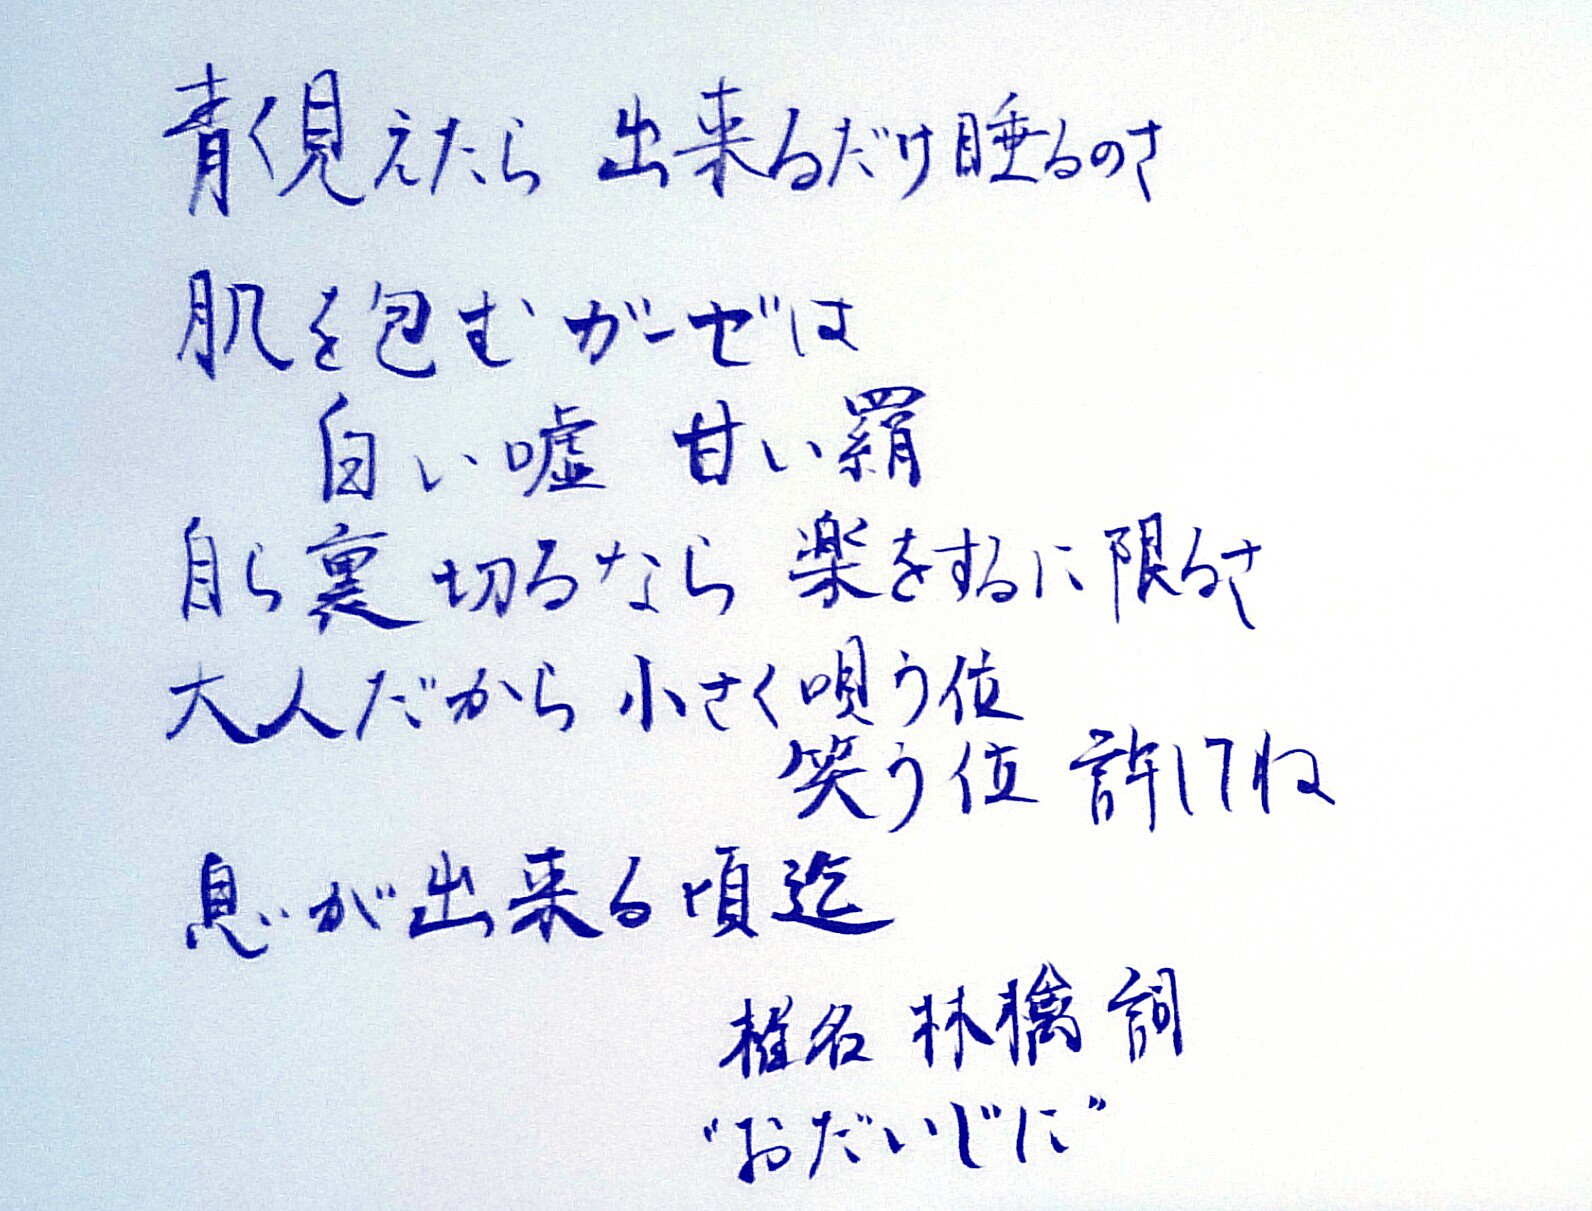 青く見えたら 出来るだけ睡るのさ
肌を包むガーゼは
白い嘘 甘い羂
自ら裏切るなら 楽をするに限るさ
大人だから 小さく唄う位
笑う位 許してね
息が出来る頃迄
椎名 林檎 詞
“おだいじに”